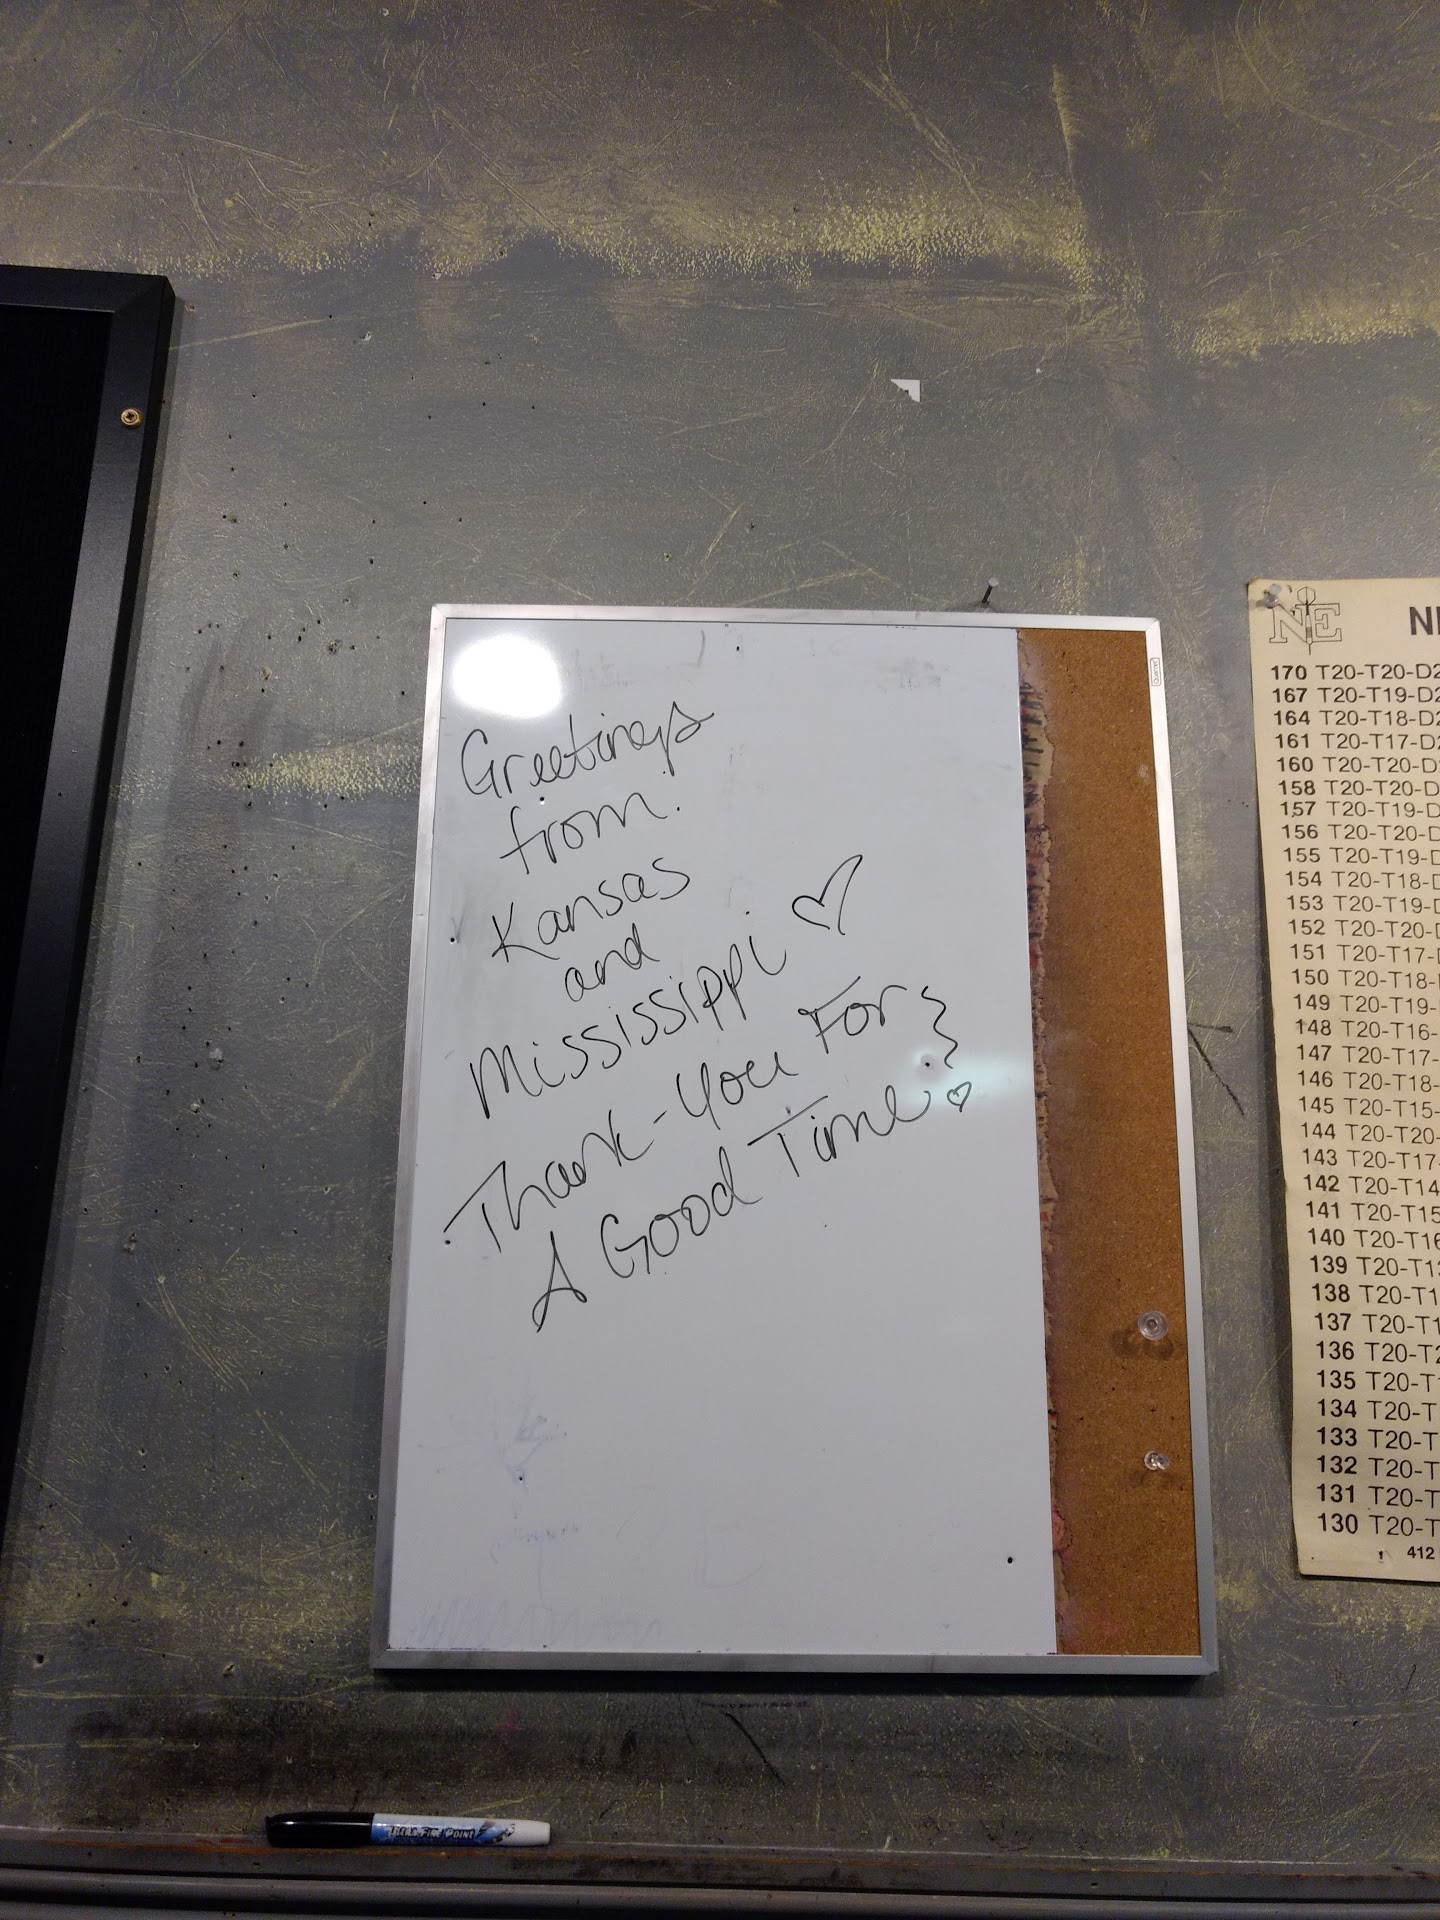 Greetings
from.
Kansas
and
Mississippi ♡
Thank-you For
A Good Time ♡
NE
170 T20-T20-D2
167 T20-T19-D2
164 T20-T18-D2
161 T20-T17-D2
160 T20-T20-D
158 T20-T20-D
157 T20-T19-D
156 T20-T20-D
155 T20-T19-D
154 T20-T18-D
153 T20-T19-D
152 T20-T20-D
151 T20-T17-D
150 T20-T18-
149 T20-T19-
148 T20-T16-
147 T20-T17-
146 T20-T18-
145 T20-T15-
144 T20-T20-
143 T20-T17-
142 T20-T14
141 T20-T15
140 T20-T16
139 T20-T1
138 T20-T1
137 T20-T1
136 T20-T2
135 T20-T
134 T20-T
133 T20-T
132 T20-T
131 T20-T
130 T20-T
412
Quartet
Fine Point